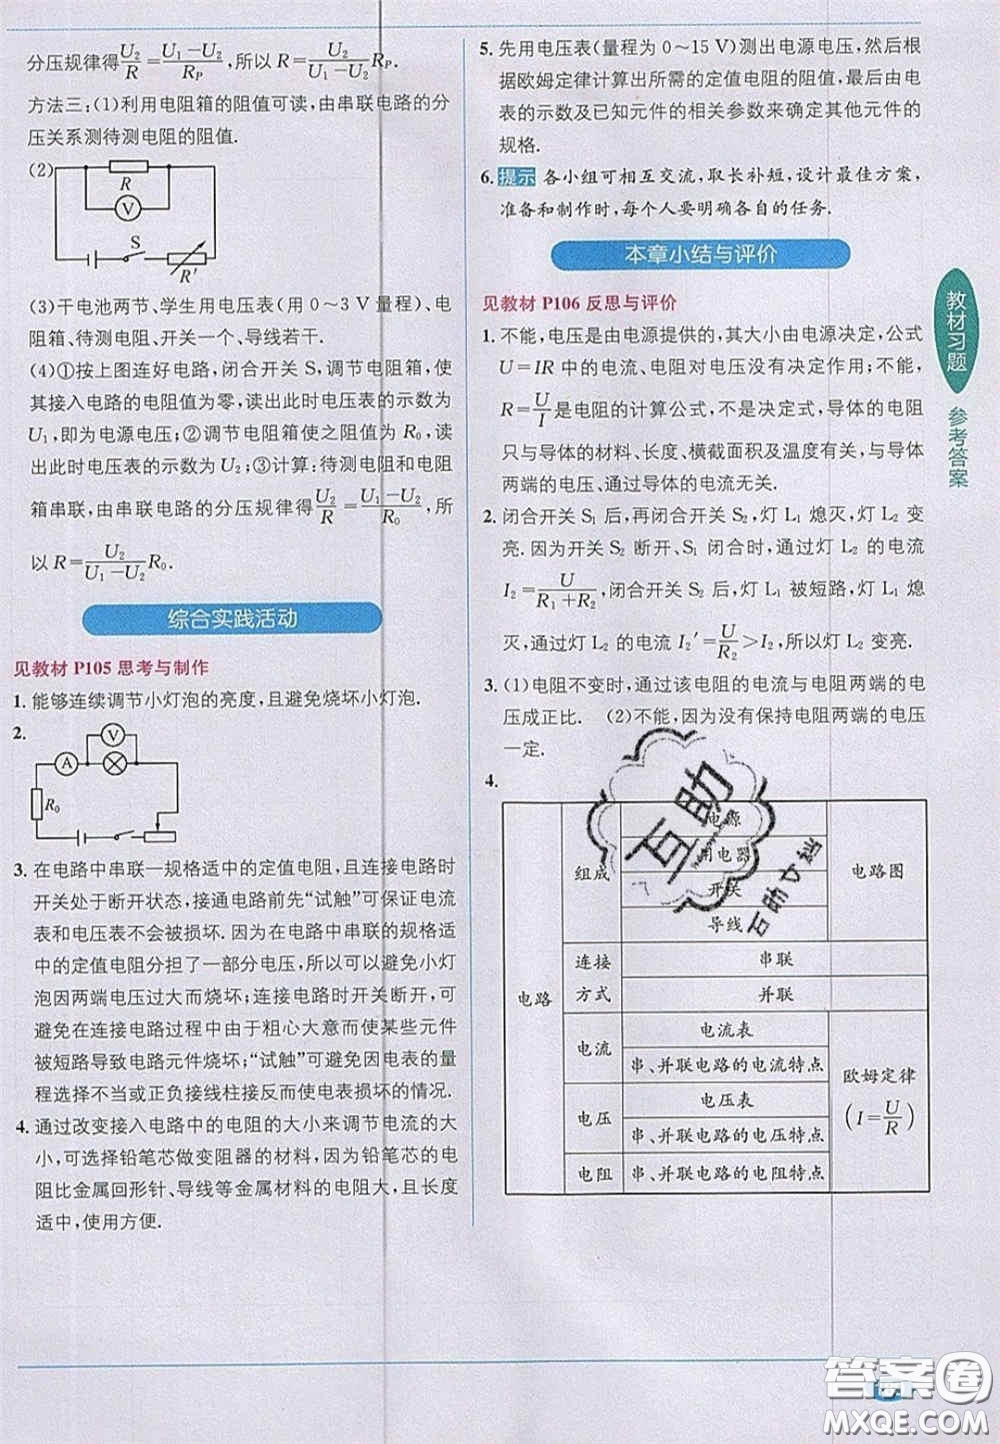 分压规律得U₂/R=(U₁-U₂)/R_P,所以 R=U₂/(U₁-U₂)R_P.
方法三:(1)利用电阻箱的阻值可读,由串联电路的分
压关系测待测电阻的阻值.
(2)
R
V
S
R′
(3)干电池两节、学生用电压表(用 0~3 V 量程)、电
阻箱、待测电阻、开关一个、导线若干.
(4)①按上图连好电路,闭合开关 S,调节电阻箱,使
其接入电路的电阻值为零,读出此时电压表的示数为
U₁,即为电源电压;②调节电阻箱使之阻值为 R₀,读
出此时电压表的示数为 U₂;③计算:待测电阻和电阻
箱串联,由串联电路的分压规律得U₂/R=(U₁-U₂)/R₀,所
以 R=U₂/(U₁-U₂)R₀.
综合实践活动
见教材 P105 思考与制作
1. 能够连续调节小灯泡的亮度,且避免烧坏小灯泡.
2.
V
A
R₀
3. 在电路中串联一规格适中的定值电阻,且连接电路时
开关处于断开状态,接通电路前先“试触”可保证电流
表和电压表不会被损坏.因为在电路中串联的规格适
中的定值电阻分担了一部分电压,所以可以避免小灯
泡因两端电压过大而烧坏;连接电路时开关断开,可
避免在连接电路过程中由于粗心大意而使某些元件
被短路导致电路元件烧坏;“试触”可避免因电表的量
程选择不当或正负接线柱接反而使电表损坏的情况.
4. 通过改变接入电路中的电阻的大小来调节电流的大
小,可选择铅笔芯做变阻器的材料,因为铅笔芯的电
阻比金属回形针、导线等金属材料的电阻大,且长度
适中,使用方便.
5. 先用电压表(量程为 0~15 V)测出电源电压,然后根
据欧姆定律计算出所需的定值电阻的阻值,最后由电
表的示数及已知元件的相关参数来确定其他元件的
规格.
6. 提示 各小组可相互交流,取长补短,设计最佳方案,
准备和制作时,每个人要明确各自的任务.
本章小结与评价
见教材 P106 反思与评价
1. 不能,电压是由电源提供的,其大小由电源决定,公式
U=IR 中的电流、电阻对电压没有决定作用;不能,
R=U/I是电阻的计算公式,不是决定式,导体的电阻
只与导体的材料、长度、横截面积及温度有关,与导体
两端的电压、通过导体的电流无关.
2. 闭合开关 S₁ 后,再闭合开关 S₂,灯 L₁ 熄灭,灯 L₂ 变
亮.因为开关 S₂ 断开、S₁ 闭合时,通过灯 L₂ 的电流
I₂=U/(R₁+R₂),闭合开关 S₂ 后,灯 L₁ 被短路,灯 L₁ 熄
灭,通过灯 L₂ 的电流 I₂′=U/R₂>I₂,所以灯 L₂ 变亮.
3. (1)电阻不变时,通过该电阻的电流与电阻两端的电
压成正比. (2)不能,因为没有保持电阻两端的电压
一定.
4.
电路
组成
电源
用电器
开关
导线
电路图
连接
方式
串联
并联
电流
电流表
串、并联电路的电流特点
电压
电压表
串、并联电路的电压特点
电阻
串、并联电路的电阻特点
欧姆定律
(I=U/R)
教材习题
参考答案
互助
答案圈
MXQE.COM